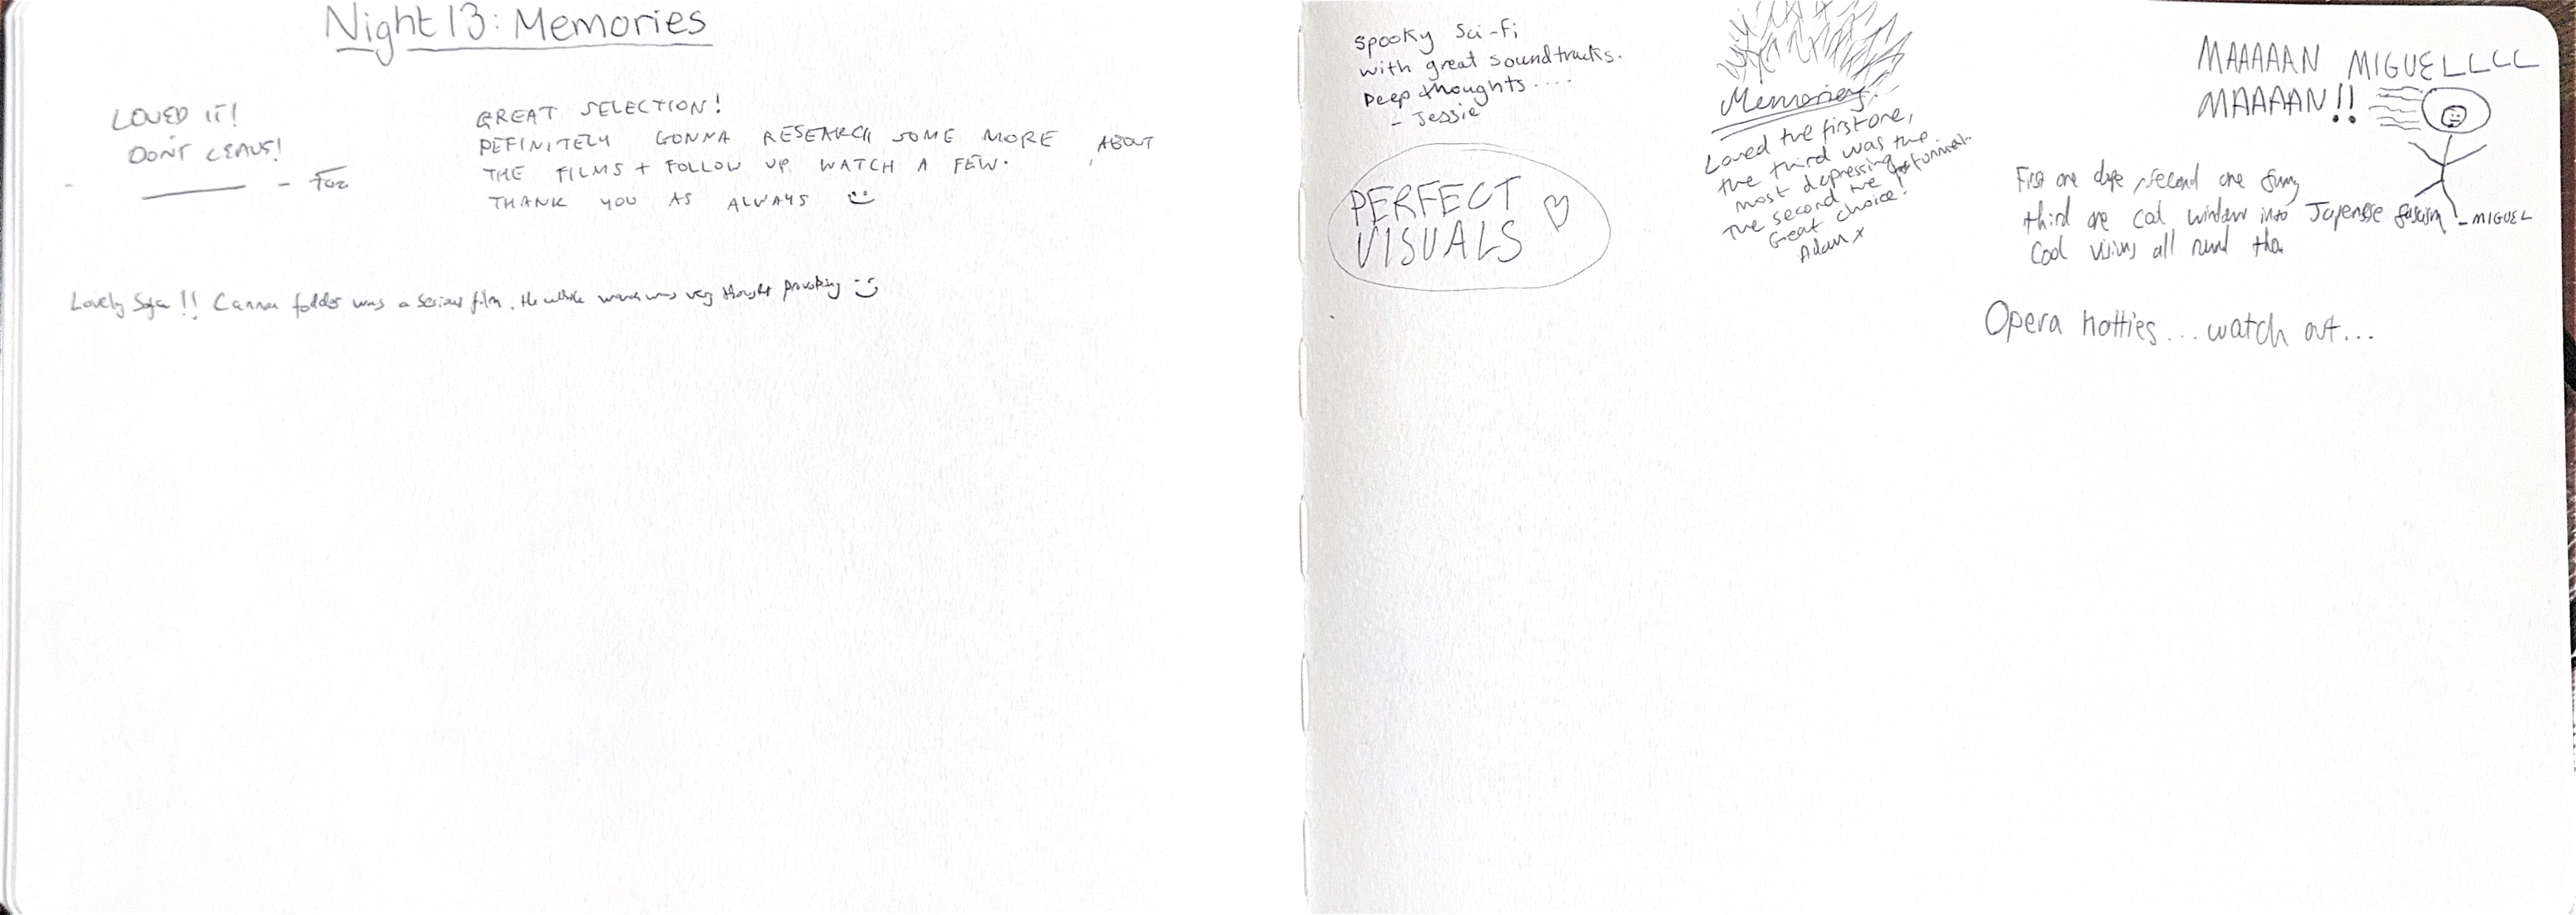 Night 13: Memories
LOVED IT!
DON'T LEAVE!
GREAT SELECTION!
DEFINITELY GONNA RESEARCH SOME MORE ABOUT
THE FILMS + FOLLOW UP WATCH A FEW.
THANK YOU AS ALWAYS
Lovely !! Cannon fodder was a serious film, the whole was very thought provoking
Spooky Sci-Fi
with great soundtracks.
Deep thoughts ....
- Jessie
PERFECT
VISUALS
Memories.
Loved the first one,
the third was the
most depressing
The second the funniest.
Great choice!
Adam x
MAAAAAN MIGUELLLL
MAAAAN!!
First one dope, second one funny
third one cool window into Japenese fascism - MIGUEL
Cool visions all
Opera hotties... watch out...